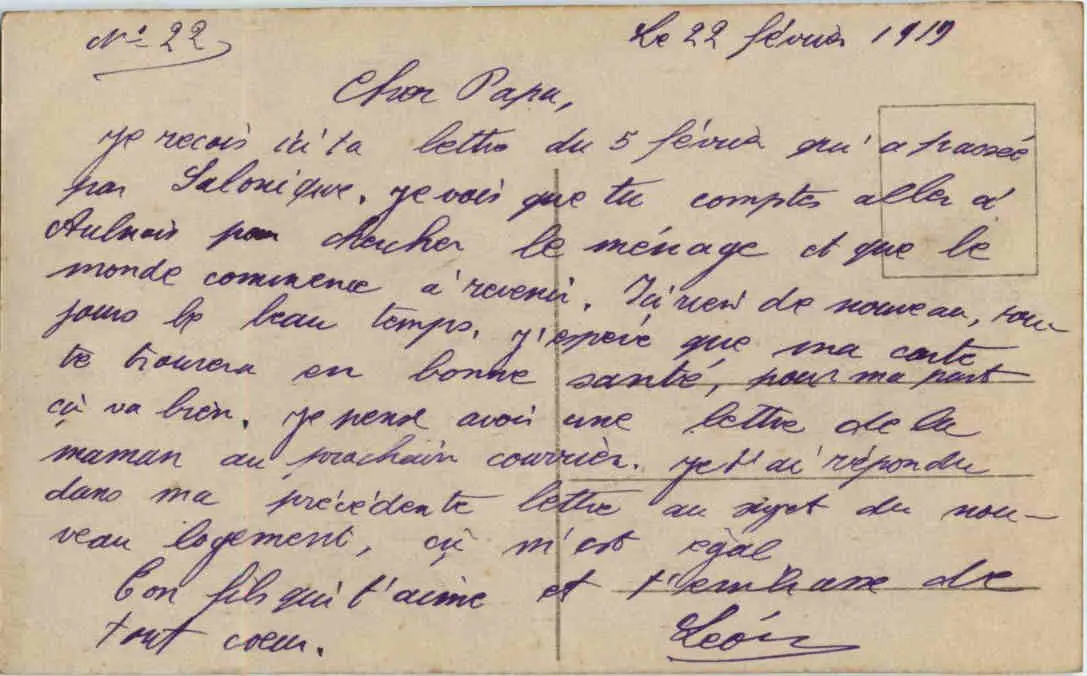 N° 22
Le 22 février 1919
Cher Papa,
je reçois ici ta lettre du 5 février qui a passée
par Salonique. je vois que tu comptes aller à
Aulnois pour chercher le ménage et que le
monde commence à revenir. Ici rien de nouveau, tou-
jours le beau temps. j'espère que ma carte
te trouvera en bonne santé, pour ma part
çà va bien. je pense avoir une lettre de la
maman au prochain courrier. je t'ai répondu
dans ma précédente lettre au sujet du nou-
veau logement, çà m'est égal
Ton fils qui t'aime et t'embrasse de
tout coeur.
Léon